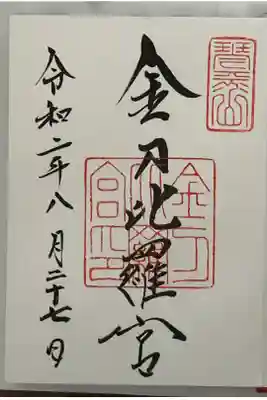 琴平山
金刀比羅宮
金刀
比羅
宮印
令和二年八月二十七日